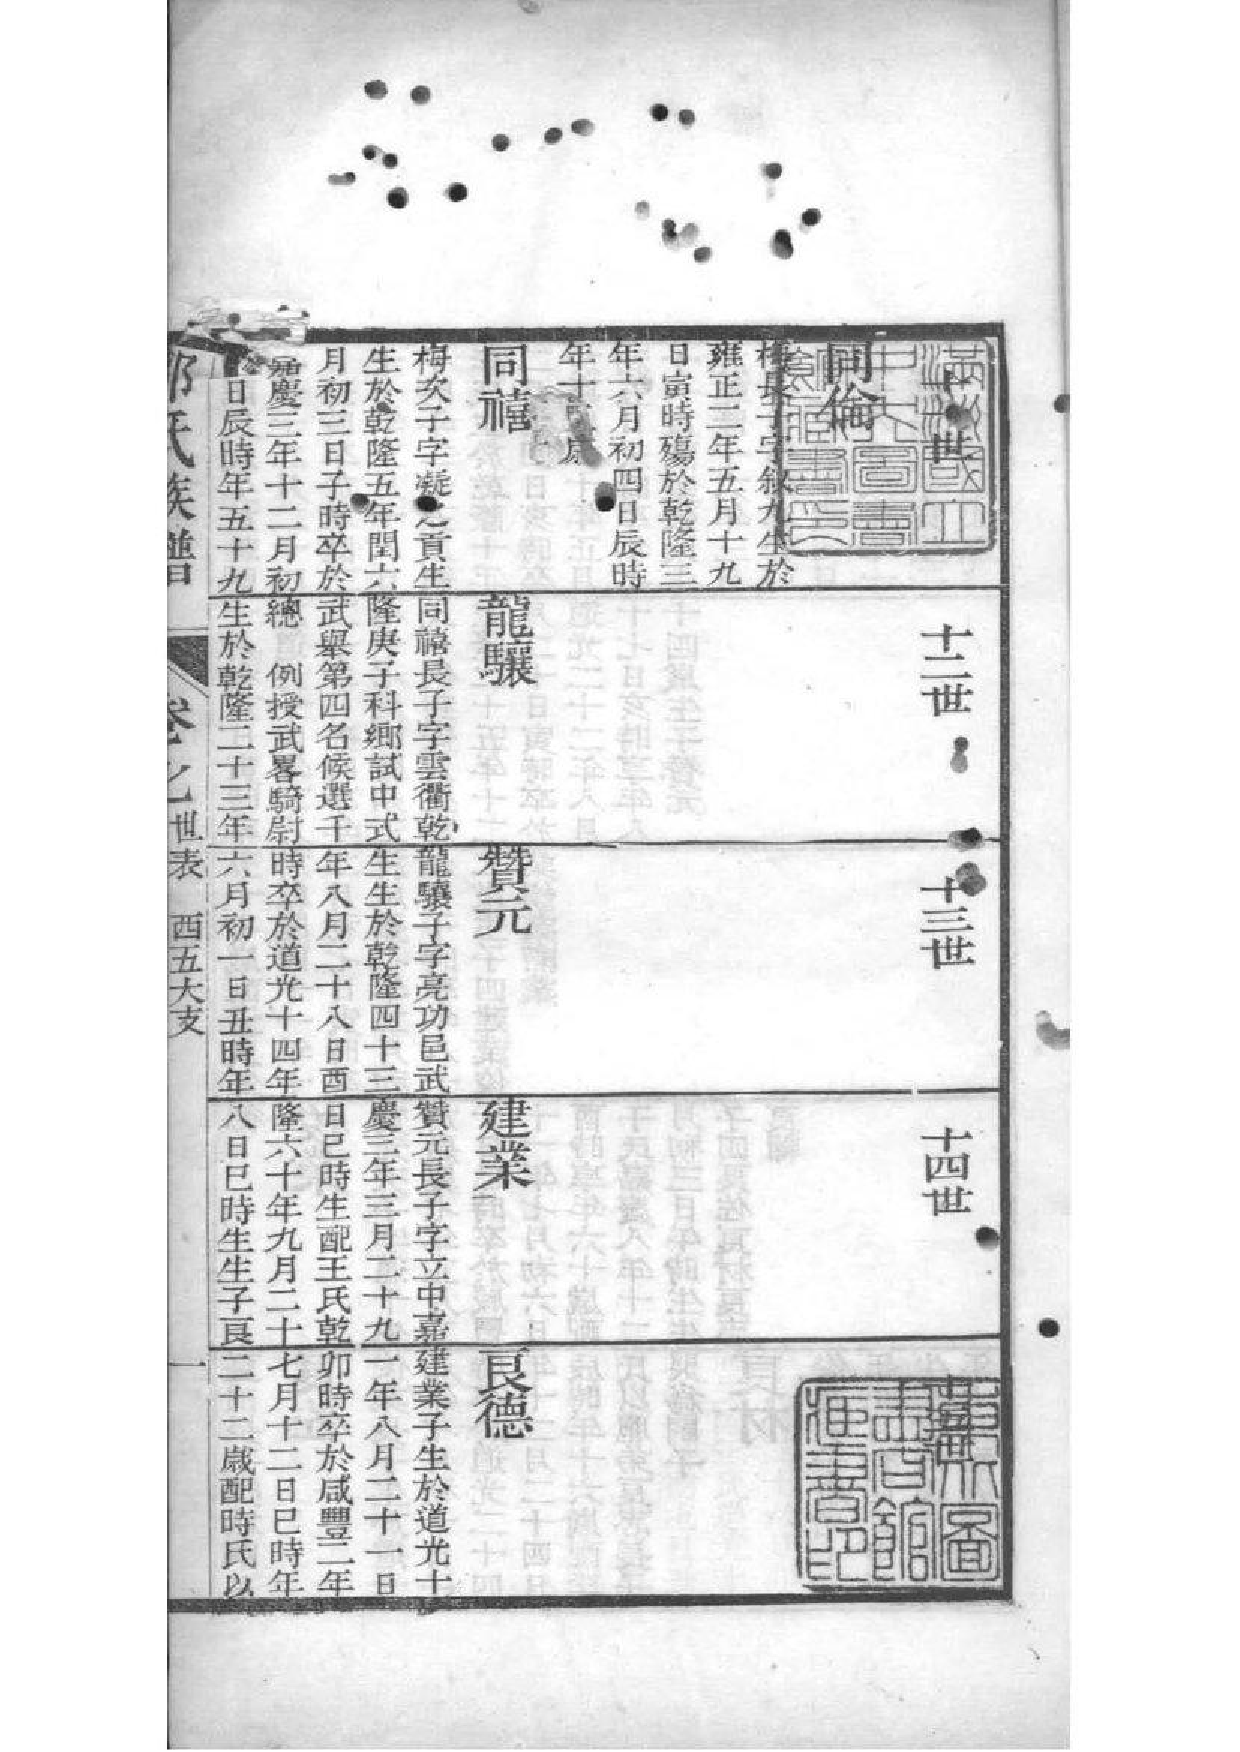 世
同倫
梅長子字敘九生於
雍正二年五月十九
日寅時殤於乾隆三
年六月初四日辰時
年十歲
同禧
梅次子字凝之貢生
生於乾隆五年閏六
月初三日子時卒於
嘉慶三年十二月初
日辰時年五十九
十二世
龍驤
同禧長子字雲衢乾
隆庚子科鄉試中式
武舉第四名候選千
總 例授武畧騎尉
生於乾隆二十三年
十三世
贊元
龍驤子字亮功邑武
生生於乾隆四十三
年八月二十八日酉
時卒於道光十四年
六月初一日丑時年
十四世
建業
贊元長子字立中嘉
慶三年三月二十九
日巳時生配王氏乾
隆六十年九月二十
八日巳時生生子良
世
良德
建業子生於道光十
一年八月二十一日
卯時卒於咸豐二年
七月十二日巳時年
二十二歲配時氏以
氏族譜
卷之 世表 西五大支 一